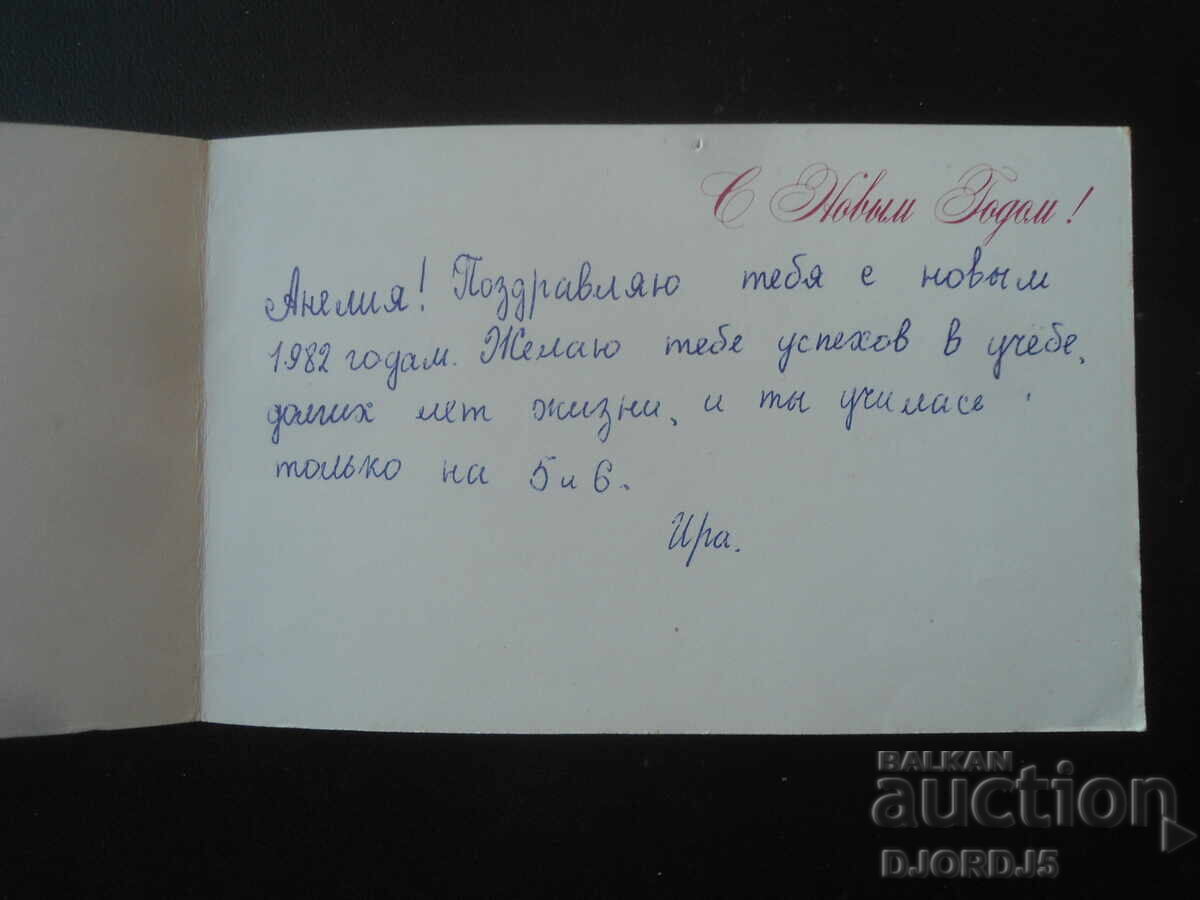 С Новым Годом!
Анелия! Поздравляю тебя с новым
1982 годам. Желаю тебе успехов в учёбе,
долгих лет жизни, и ты училась
только на 5 и 6.
Ира.
BALKAN
auction
DJORDJ5